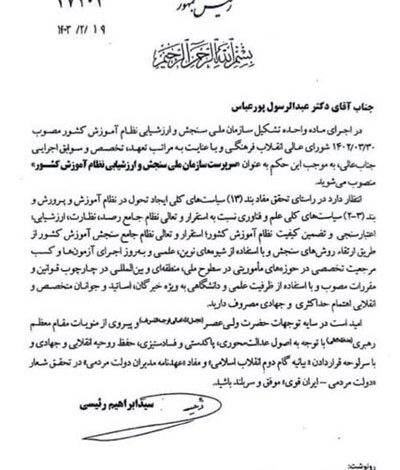 رئیس جمهور
۱۴۰۳/۲/۱۹
بسم الله الرحمن الرحیم
جناب آقای دکتر عبدالرسول پورعباس
در اجرای ماده واحده تشکیل سازمان ملی سنجش و ارزشیابی نظام آموزش کشور مصوب
۱۴۰۲/۰۳/۳۰ شورای عالی انقلاب فرهنگی و با عنایت به مراتب تعهد، تخصص و سوابق اجرایی
جناب‌عالی، به موجب این حکم به عنوان «سرپرست سازمان ملی سنجش و ارزشیابی نظام آموزش کشور»
منصوب می‌شوید.
انتظار دارد در راستای تحقق مفاد بند (۱۳) سیاست‌های کلی ایجاد تحول در نظام آموزش و پرورش و
بند (۳-۲) سیاست‌های کلی علم و فناوری نسبت به استقرار و تعالی نظام جامع رصد، نظارت، ارزشیابی،
اعتبارسنجی و تضمین کیفیت نظام آموزش کشور؛ استقرار و تعالی نظام جامع سنجش آموزش کشور از
طریق ارتقاء روش‌های سنجش و با استفاده از شیوه‌های نوین، علمی و به‌روز اجرای آزمون‌ها و کسب
مرجعیت تخصصی در حوزه‌های مأموریتی در سطوح ملی، منطقه‌ای و بین‌المللی در چارچوب قوانین و
مقررات مصوب و با استفاده از ظرفیت علمی و دانشگاهی به ویژه خبرگان، اساتید و جوانان متخصص و
انقلابی اهتمام حداکثری و جهادی مصروف دارید.
امید است در سایه توجهات حضرت ولی‌عصر و پیروی از منویات مقام معظم
رهبری با توجه به اصول عدالت‌محوری، پاکدستی و فسادستیزی، حفظ روحیه انقلابی و جهادی و
با سرلوحه قراردادن «بیانیه گام دوم انقلاب اسلامی» و مفاد «عهدنامه مدیران دولت مردمی» در تحقق شعار
«دولت مردمی – ایران قوی» موفق و سربلند باشید.
سیدابراهیم رئیسی
رونوشت: